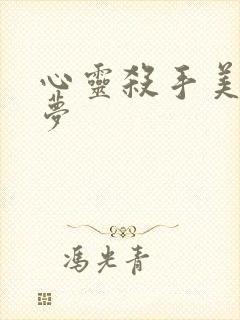 心靈殺手美
夢
馮光青